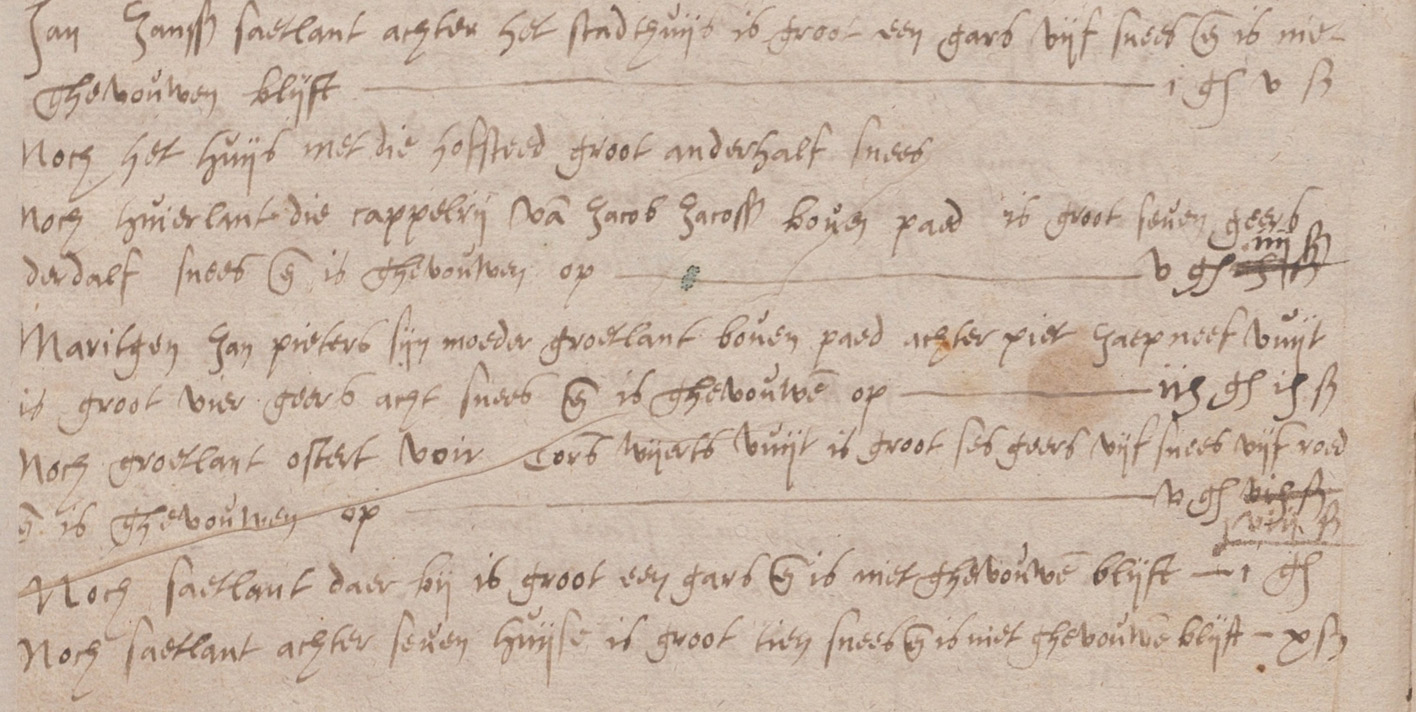 Jan Janss saetlant achter het stadthuijs is groot een gars vijf snees en̄ is niet
ghevouwen blijft — i gs v sn
Noch het huijs met die hofsteed groot anderhalf snees
Noch huierlant die cappelrij vā Jacob Jacoss boven paed is groot seven geers
derdalf snees en̄ is ghevouwen op — v gs iiij sn
Maritgen Jan pieters sijn moeder groetlant boven paed achter piet Jaepneef vuijt
is groot vier geers acht snees en̄ is ghevouwē op — iij gs ij sn
Noch groetlant ostert voir Cors wijerts vuijt is groot ses geers vijf snees vijf roed
en̄ is ghevouwen op — v gs viij sn
Noch saetlant daer bij is groot een gars en̄ is niet ghevouwē blijft — i gs
Noch saetlant achter seven huijse is groot tien snees en̄ is niet ghevouwē blijft — x sn